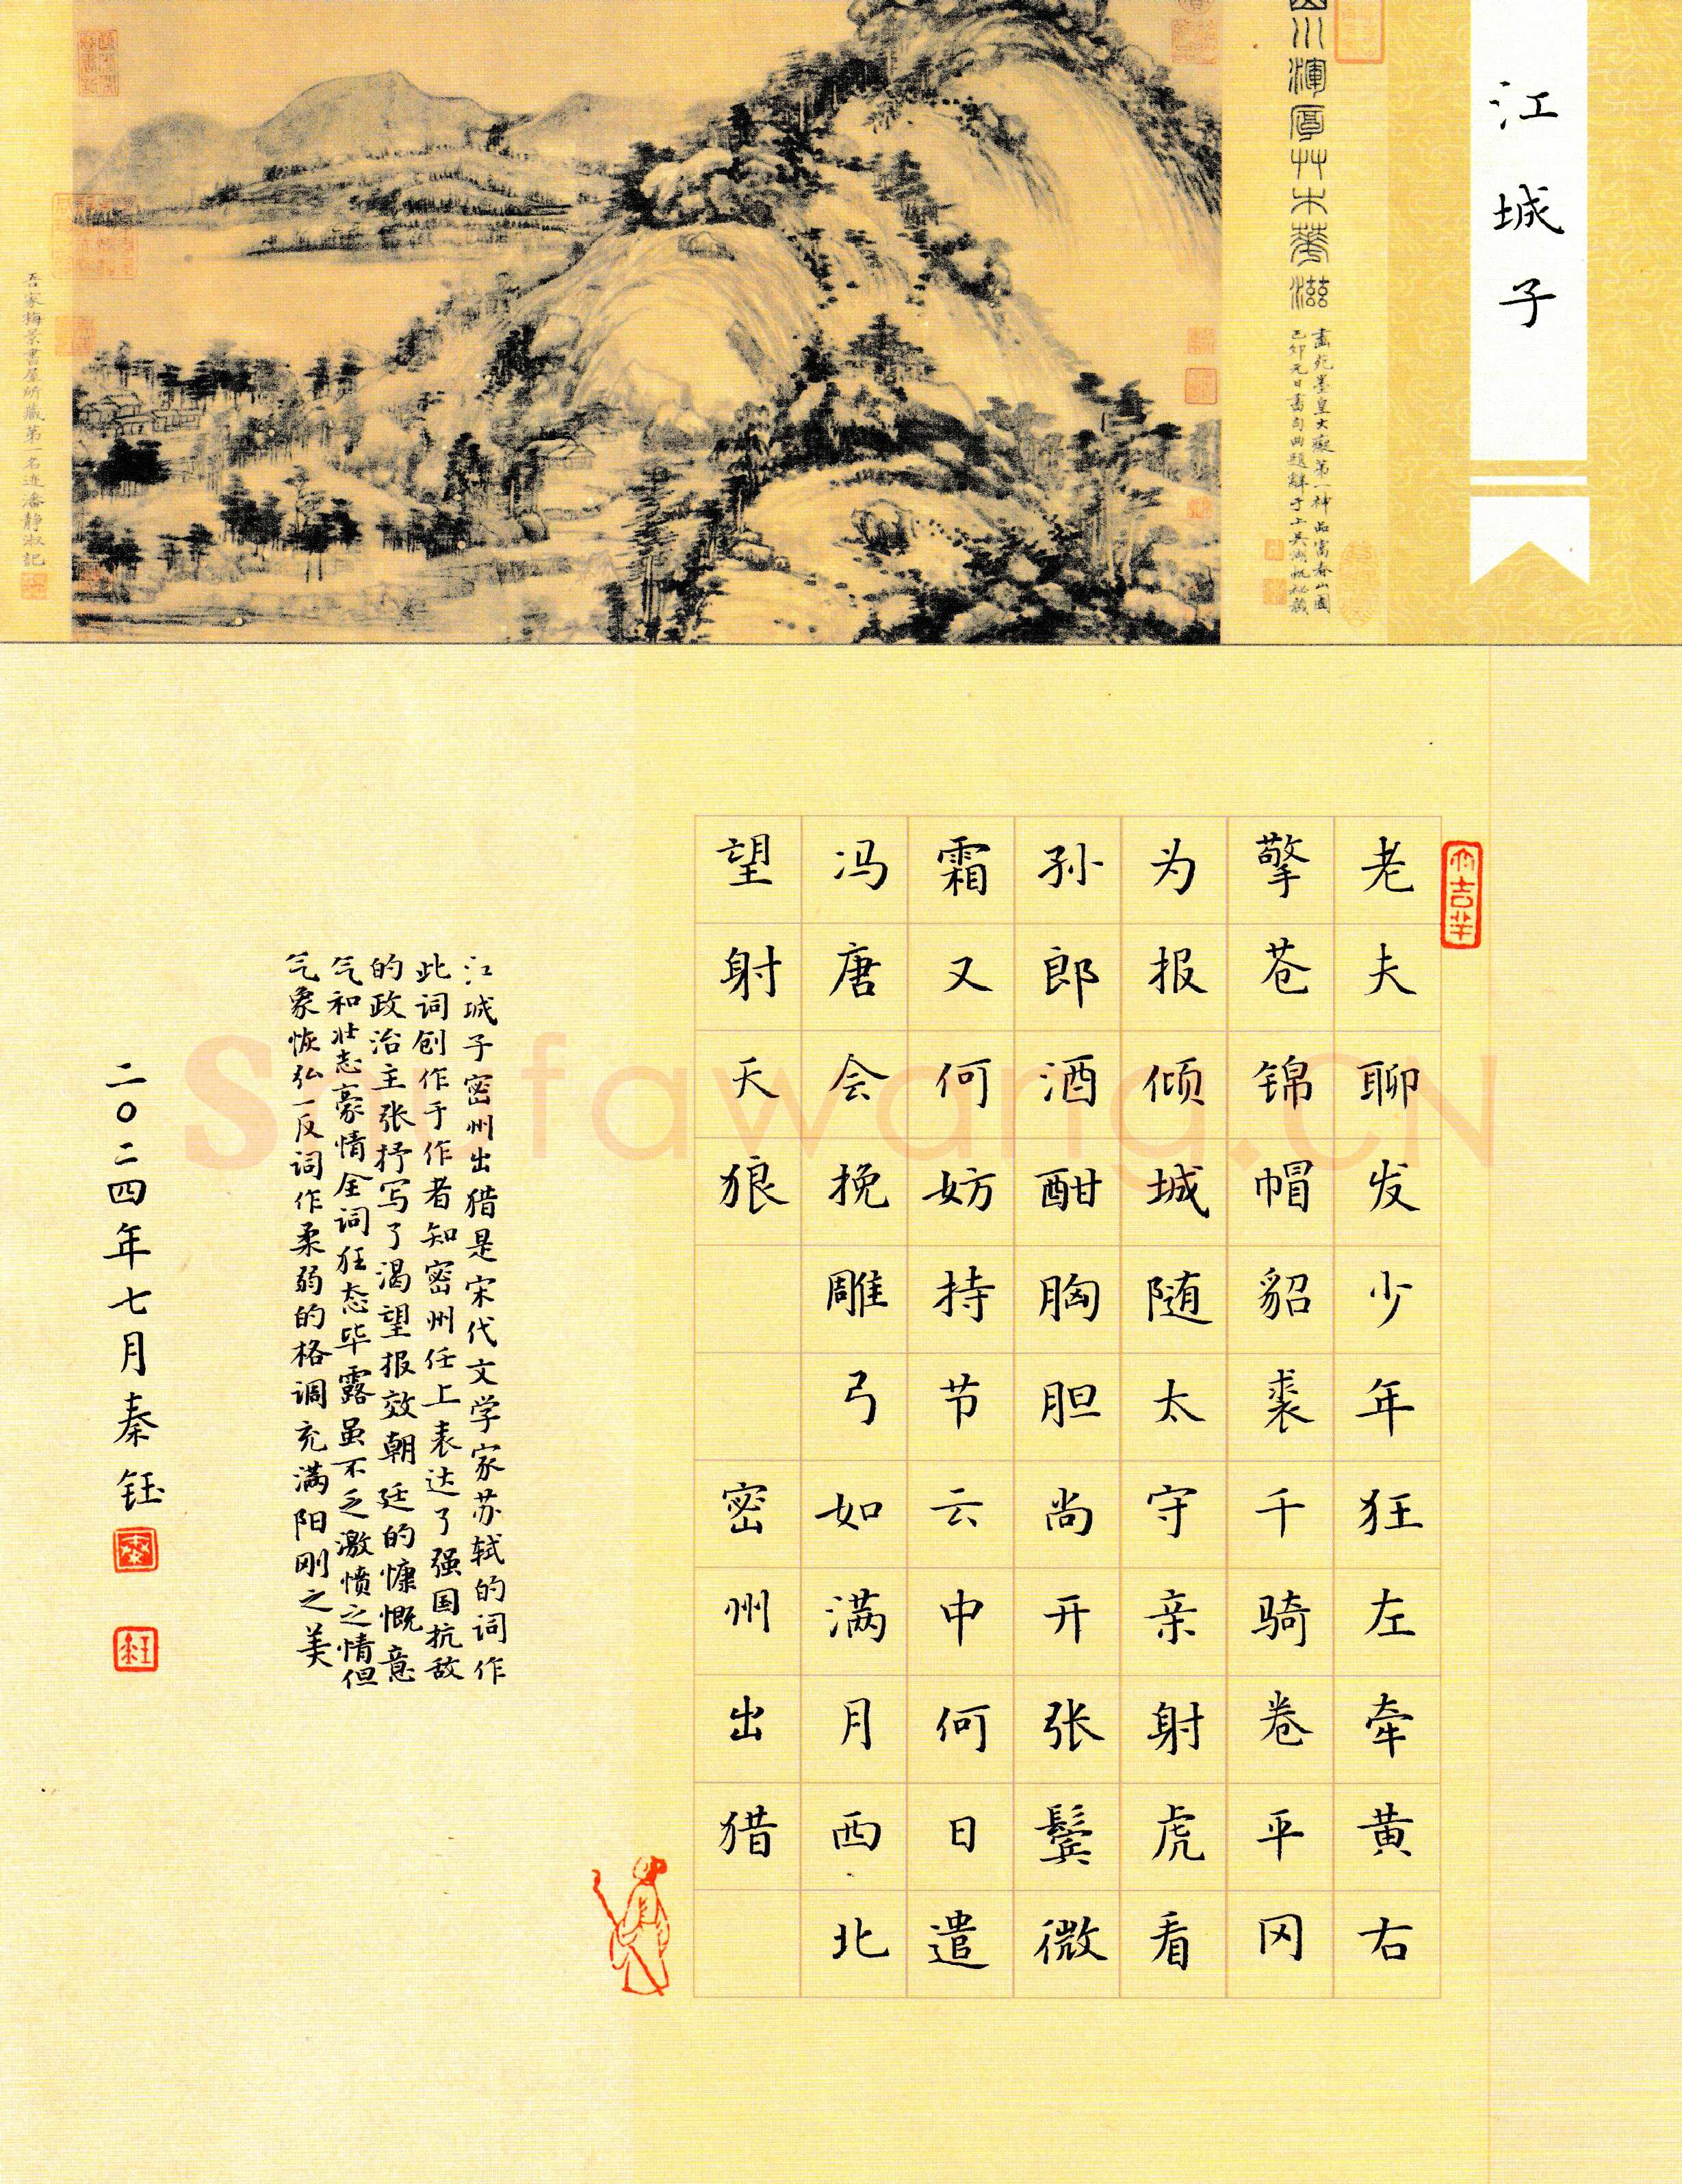 江城子
山川渾厚艸木華滋
畫苑墨皇大癡第一神品富春山圖
己卯元日書句曲題辭于上吴湖帆秘藏
吾家梅景書屋所藏第一名迹潘静淑記
老夫聊发少年狂左牵黄右
擎苍锦帽貂裘千骑卷平冈
为报倾城随太守亲射虎看
孙郎酒酣胸胆尚开张鬓微
霜又何妨持节云中何日遣
冯唐会挽雕弓如满月西北
望射天狼 密州出猎
江城子密州出猎是宋代文学家苏轼的词作
此词创作于作者知密州任上表达了强国抗敌
的政治主张抒写了渴望报效朝廷的慷慨意
气和壮志豪情全词狂态毕露虽不乏激愤之情但
气象恢弘一反词作柔弱的格调充满阳刚之美
二〇二四年七月秦钰
Shufawang.CN